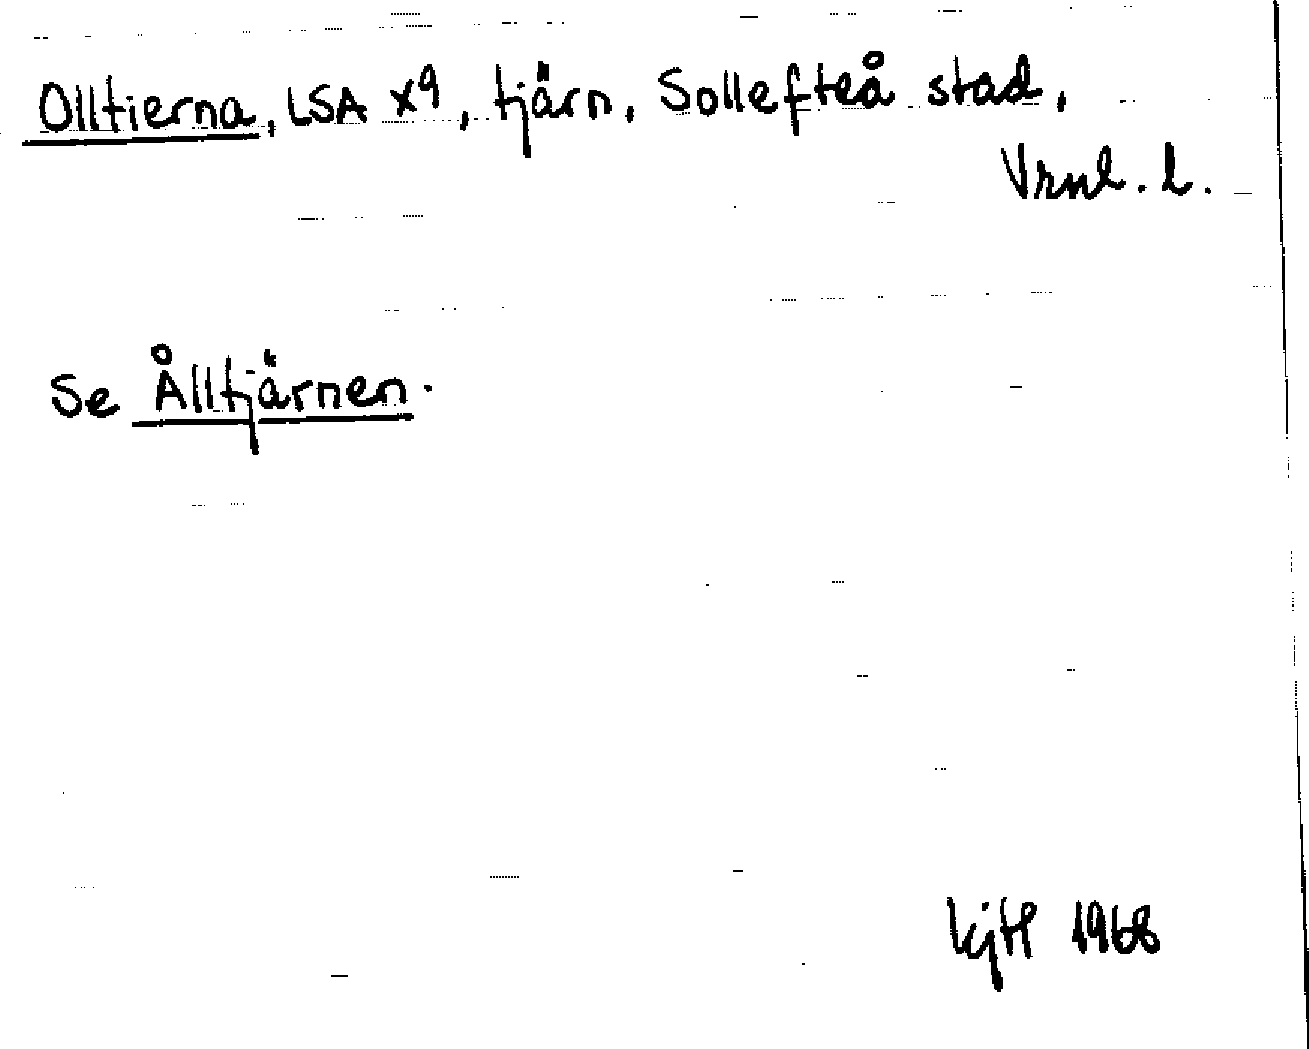 Olltierna, LSA X9, tjärn, Sollefteå stad,
Vrnl. l.
Se Ålltjärnen.
1968